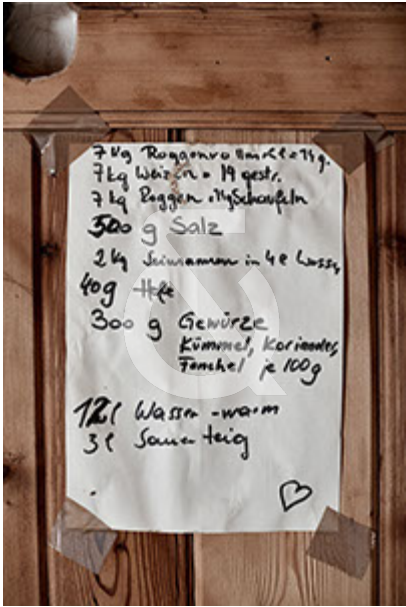 7 kg Roggenvollmehl = 19 g.
7 kg Weizen = 19 gestr.
7 kg Roggen Schaufeln
500 g Salz
2 kg in 4 l Wasser
40g Hefe
300 g Gewürze
Kümmel, Koriander,
Fenchel je 100g
12l Wasser - warm
3l Sauerteig
&